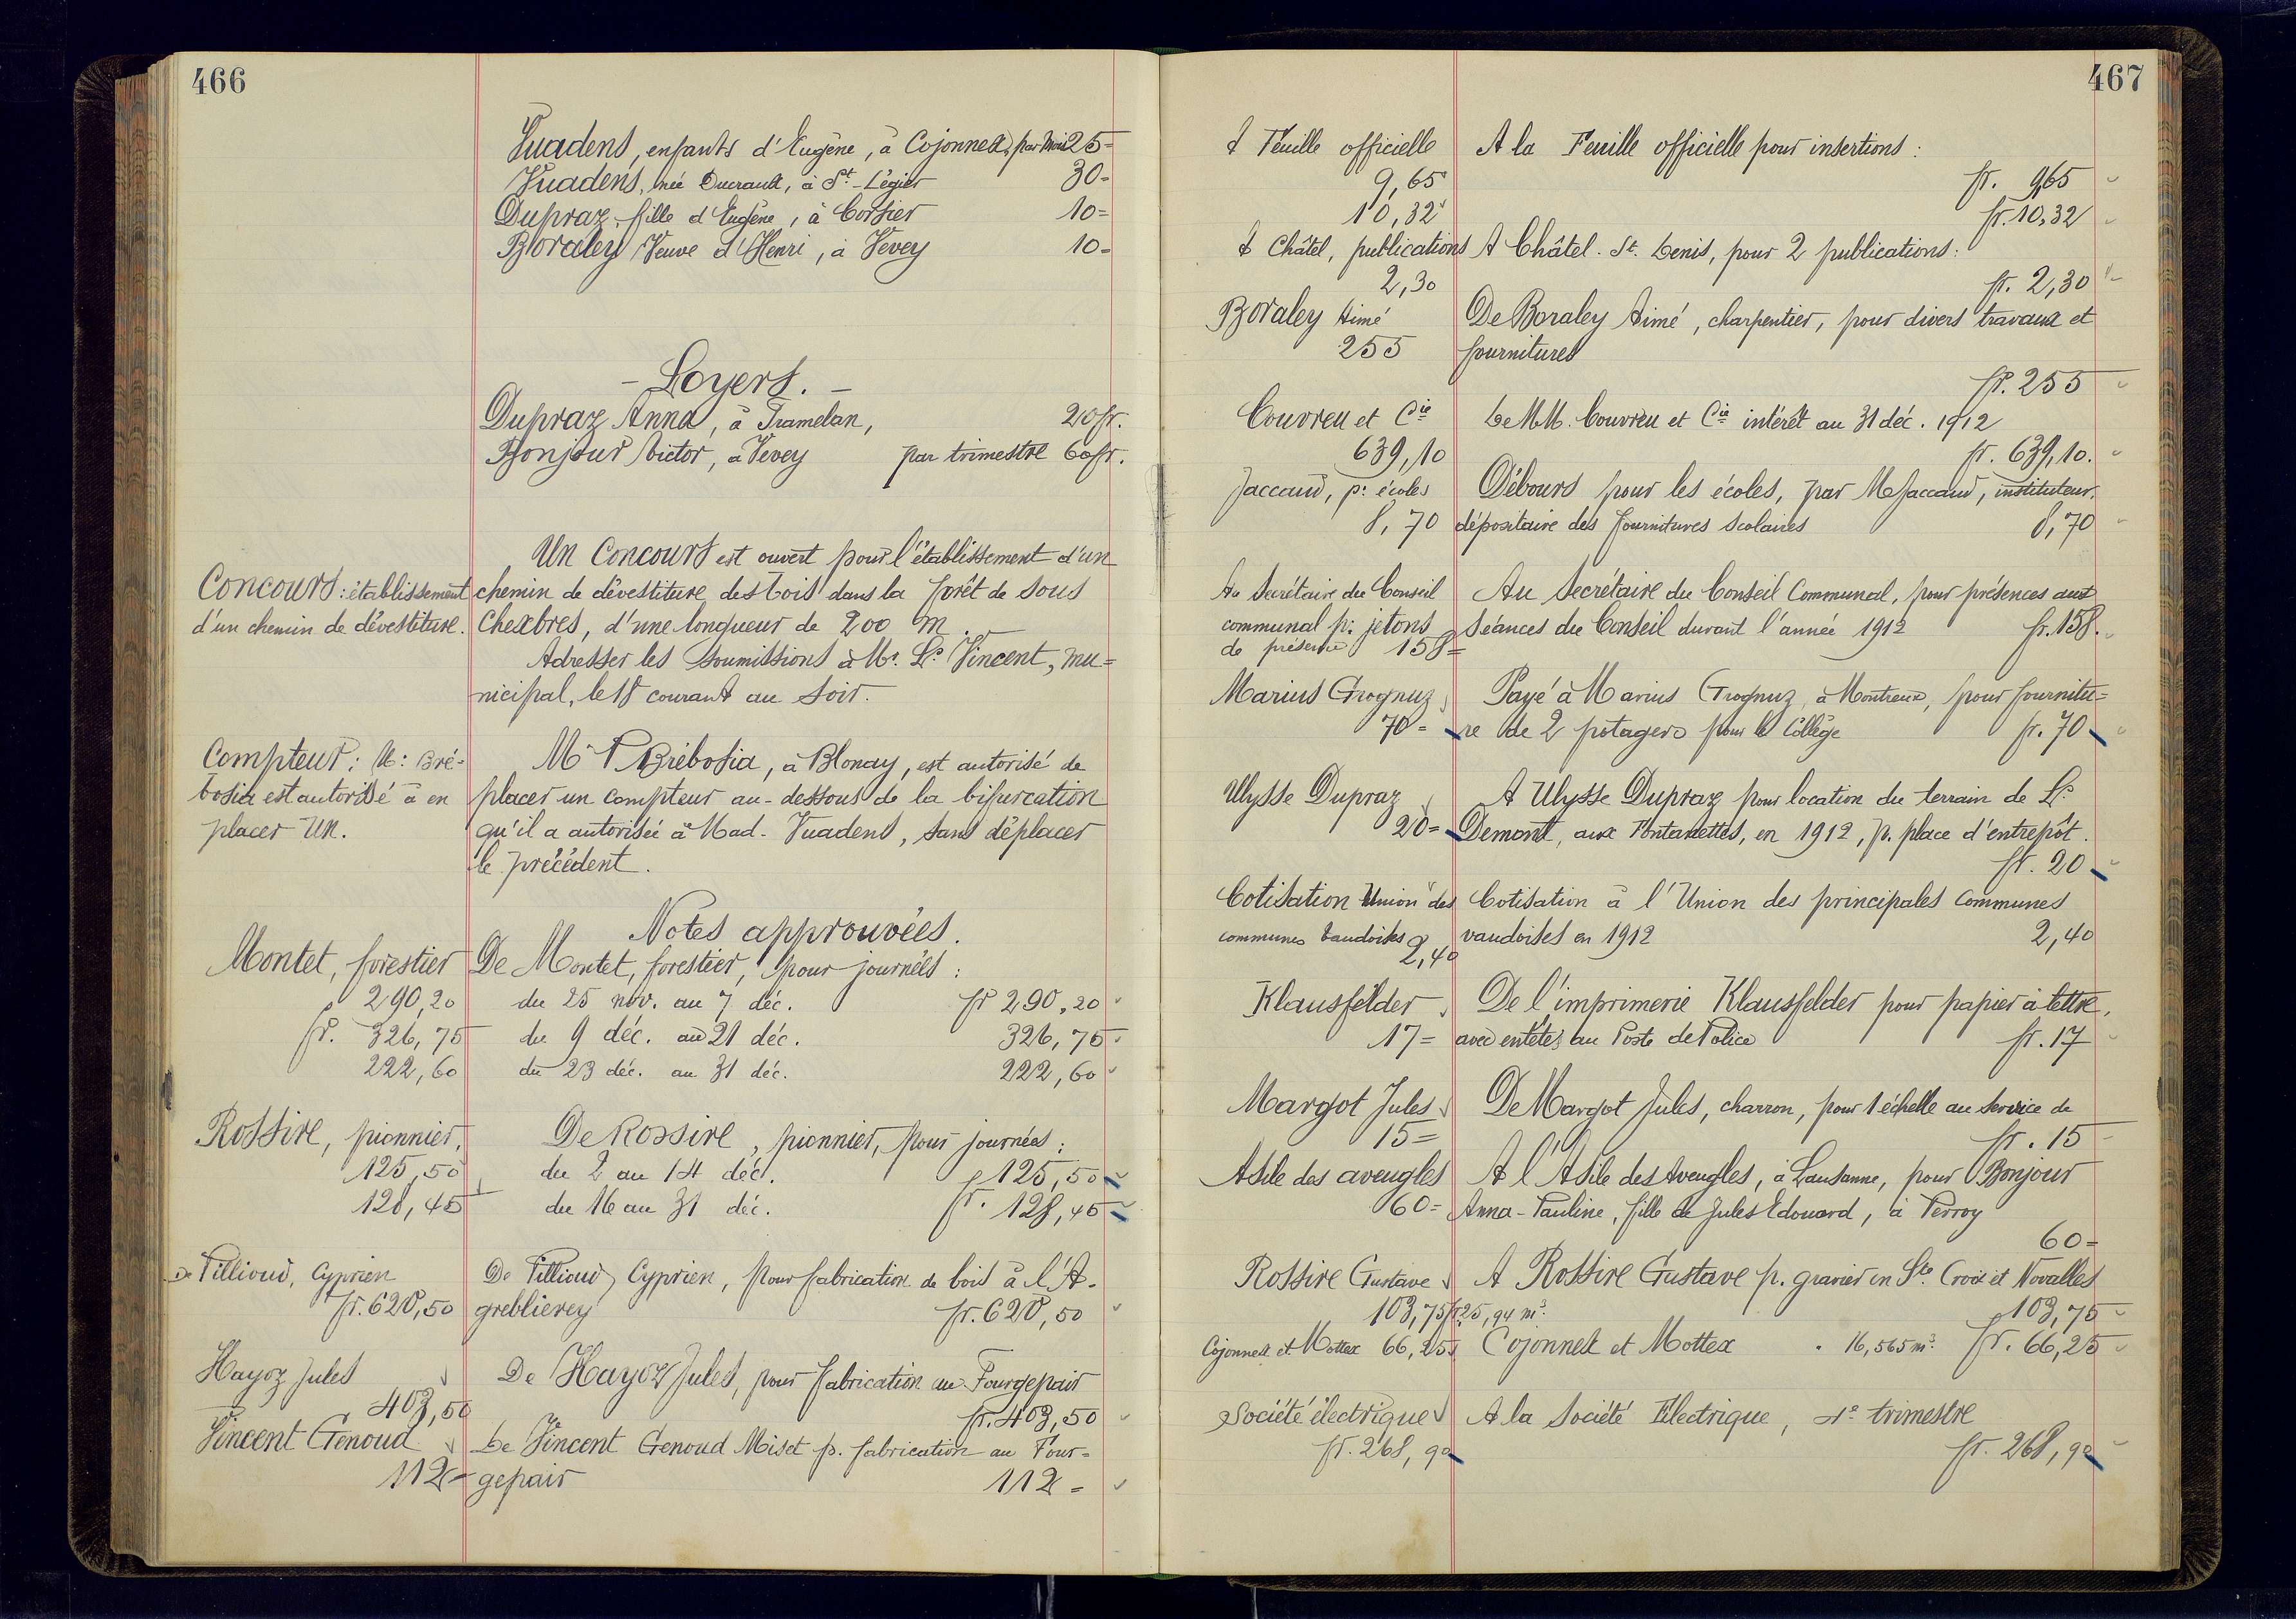 466
Vuadens, enfants d'Eugène, à Cojonnex, par mois 25=
Vuadens, née Ducraux, à St-Légier 30=
Dupraz, fille d'Eugène, à Corsier 10=
Boraley Veuve d'Henri, à Vevey 10=
- Loyers. -
Dupraz Anna, à Tramelan, 20 fr.
Bonjour Victor, à Vevey par trimestre 60 fr.
Un Concours est ouvert pour l'établissement d'un
Concours : établissement
d'un chemin de dévestiture.
chemin de dévestiture des bois dans la forêt de sous
Chexbres, d'une longueur de 200 m.
Adresser les soumissions à Mr. Ls Vincent, mu=
nicipal, le 18 courant au soir.
Compteur : M: Bré-
bosia est autorisé à en
placer un.
Mr Brébosia, à Blonay, est autorisé de
placer un compteur au-dessous de la bifurcation
qu'il a autorisée à Mad. Vuadens, sans déplacer
le précédent.
Notes approuvées.
Montet, forestier
290,20
fr. 326,75
222,60
De Montet, forestier, pour journées :
du 25 nov. au 7 déc. fr 290,20
du 9 déc. au 21 déc. 326,75
du 23 déc. au 31 déc. 222,60
Rossire, pionnier,
125,50
128,45
De Rossire, pionnier, pour journées :
du 2 au 14 déc. 125,50
du 16 au 31 déc. fr. 128,45
De Pillioud, Cyprien
fr. 628,50
De Pillioud, Cyprien, pour fabrication de bois à l'A-
greblierey fr. 628,50
Hayoz Jules
403,50
De Hayoz Jules, pour fabrication au Fourgepair
fr. 403,50
Vincent Genoud
112=
De Vincent Genoud Miset p. fabrication au Four-
gepair 112=
467
à Feuille officielle
9,65
10,32
A la Feuille officielle pour insertions :
fr. 9,65
fr. 10,32
à Châtel, publications
2,30
A Châtel-St. Denis, pour 2 publications :
fr. 2,30
Boraley Aimé
255
De Boraley Aimé, charpentier, pour divers travaux et
fournitures
fr. 255
Couvreu et Cie
639,10
De MM. Couvreu et Cie intérêt au 31 déc. 1912
fr. 639,10.
Jaccaud, p: écoles
8,70
Débours pour les écoles, par M Jaccaud, instituteur,
dépositaire des fournitures scolaires 8,70
Au Secrétaire du Conseil
communal p: jetons
de présence 158=
Au Secrétaire du Conseil Communal, pour présences aux
séances du Conseil durant l'année 1912 fr. 158.
Marius Grognuz
70=
Payé à Marius Grognuz, à Montreux, pour fournitu=
re de 2 potagers pour le Collège fr. 70
Ulysse Dupraz
20=
A Ulysse Dupraz pour location du terrain de Ls
Demont, aux Fontanettes, en 1912, p. place d'entrepôt.
fr. 20
Cotisation Union des
communes vaudoises 2,40
Cotisation à l'Union des principales communes
vaudoises en 1912 2,40
Klausfelder
17=
De l'imprimerie Klausfelder pour papier à lettre,
avec entêtes au Poste de Police fr. 17
Margot Jules
15=
De Margot Jules, charron, pour 1 échelle au service de
fr. 15
Asile des aveugles
60=
A l'Asile des Aveugles, à Lausanne, pour Bonjour
Anna-Pauline, fille de Jules Edouard, à Perroy
60=
Rossire Gustave
103,75
A Rossire Gustave p. gravier en Ste Croix et Novalles
p. 25,94 m3. 103,75
Cojonnex et Mottex 66,25
Cojonnex et Mottex " 16,565 m3. fr. 66,25
Société électrique
fr. 268,90
A la Société Electrique, 4e trimestre
fr. 268,90